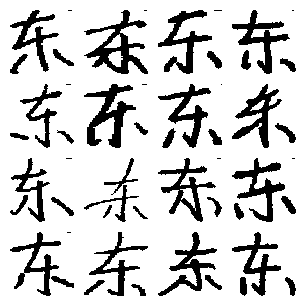 东东东东
东东东东
东东东东
东东东东